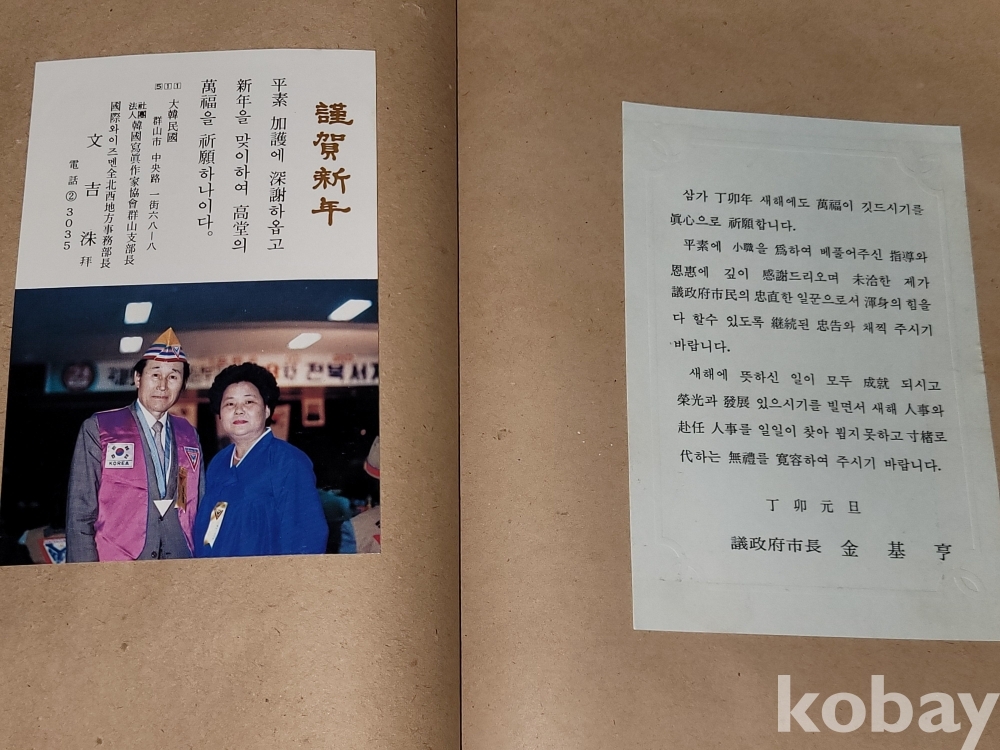 謹賀新年
平素 加護에 深謝하옵고
新年을 맞이하여 高堂의
萬福을 祈願하나이다。
511
大韓民國
群山市 中央路 一街六八ー八
社團法人 韓國寫眞作家協會群山支部長
國際와이즈멘全北西地方事務部長
文 吉 洙 拜
電話 ② 3035
전북서지
KOREA
삼가 丁卯年 새해에도 萬福이 깃드시기를
眞心으로 祈願합니다.
平素에 小職을 爲하여 베풀어주신 指導와
恩惠에 깊이 感謝드리오며 未洽한 제가
議政府市民의 忠直한 일꾼으로서 渾身의 힘을
다 할수 있도록 継続된 忠告와 채찍 주시기
바랍니다.
새해에 뜻하신 일이 모두 成就 되시고
榮光과 發展 있으시기를 빌면서 새해 人事와
赴任 人事를 일일이 찾아 뵙지못하고 寸緖로
代하는 無禮를 寬容하여 주시기 바랍니다.
丁 卯 元 旦
議政府市長 金 基 亨
kobay